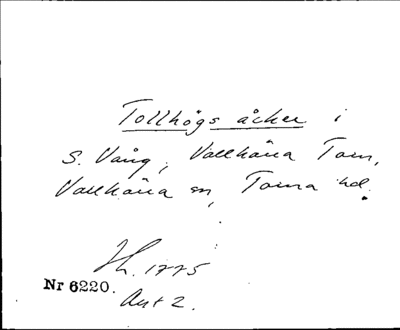 Tollhögs åcker i
S. Vång, Vallkära Torn,
Vallkära sn, Torna hd.
Ht. 1775
Nr 6220.
Akt 2.